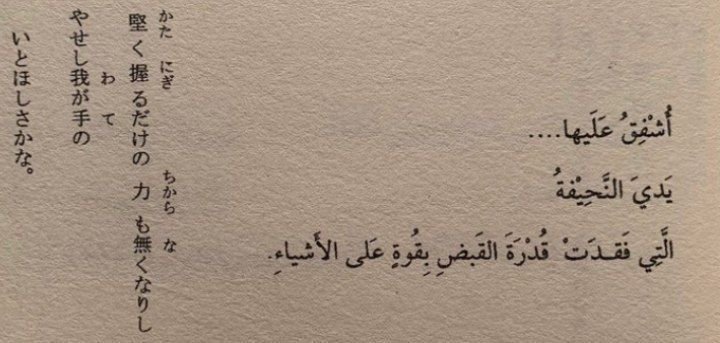 堅く握るだけの力も無くなりし
かた にぎ ちから な
やせし我が手の
わ て
いとほしさかな。
أُشْفِقُ عَلَيها....
يَدِيَ النَّحِيْفةُ
الَّتِي فَقدَتْ قُدْرَةَ القَبضِ بِقُوةٍ عَلى الأَشياءِ.